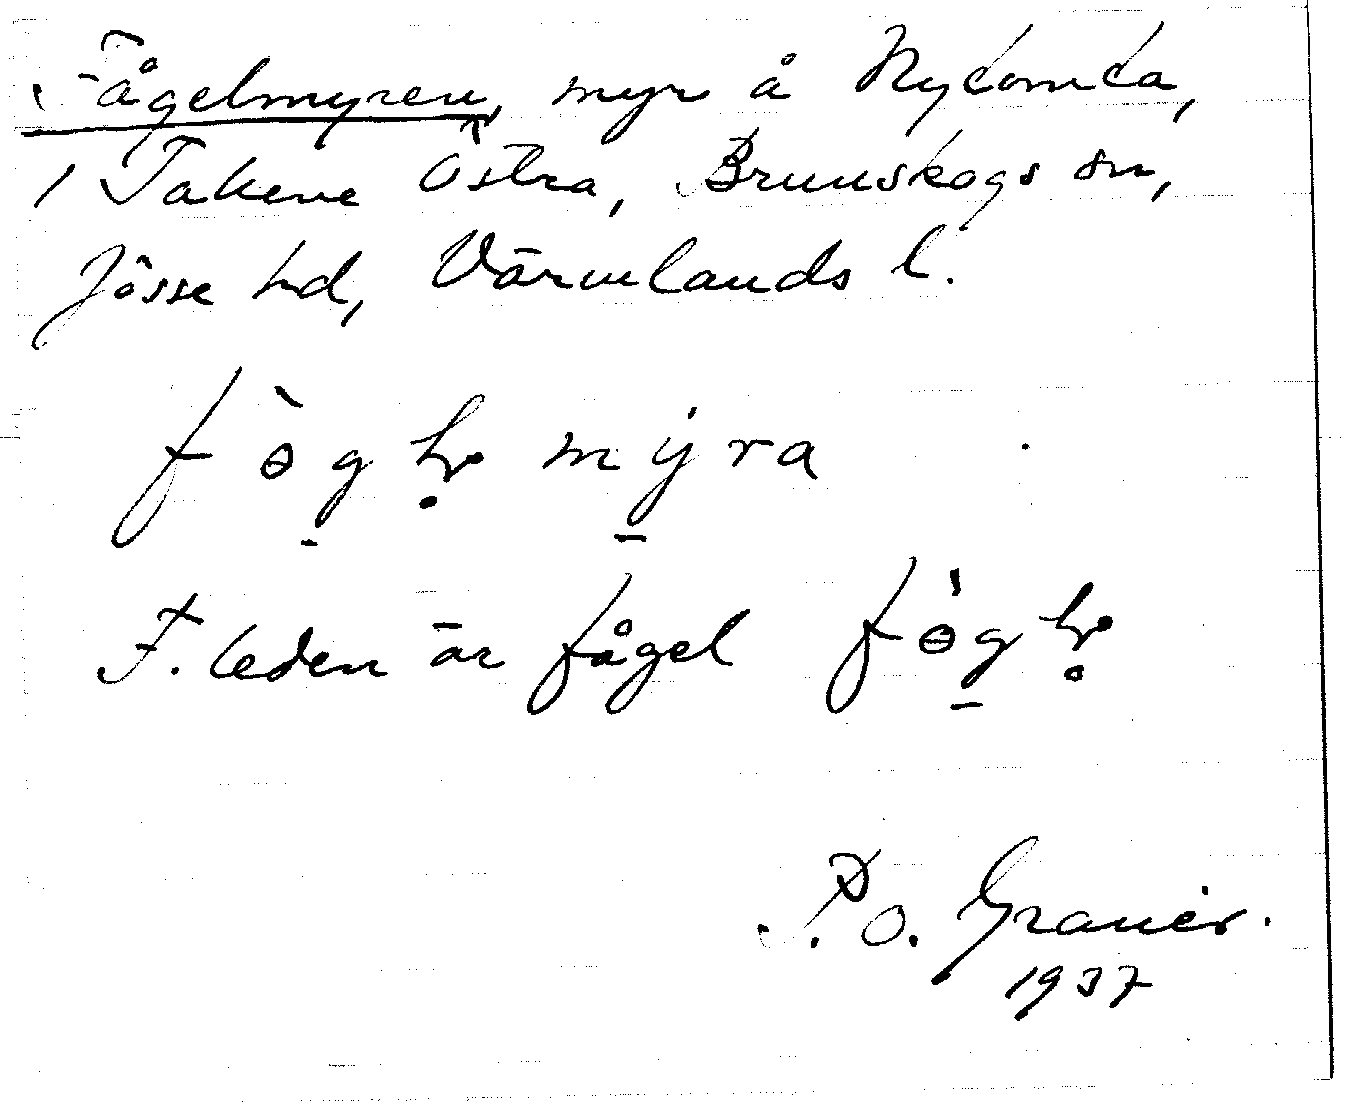 Fågelmyren, myr å Nytomta,
/ Takene Östra, Brunskogs sn,
Jösse hd, Värmlands l.
fɵ̀gl̥ mỳra
F. leden är fågel fɵ̀gl̥
P. O. Granér.
1937